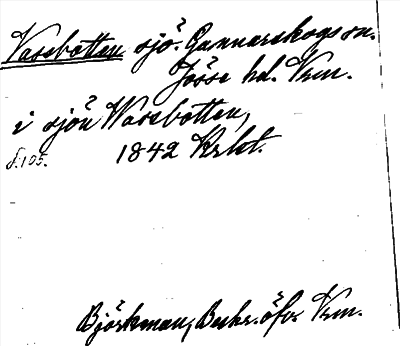 Vassbotten sjö. Gunnarskogs sn.
Jösse hd. Vrm.
i sjön Wassbotten,
s.105. 1842 Krbl.
Björkman, Beskr. öfv. Vrm.